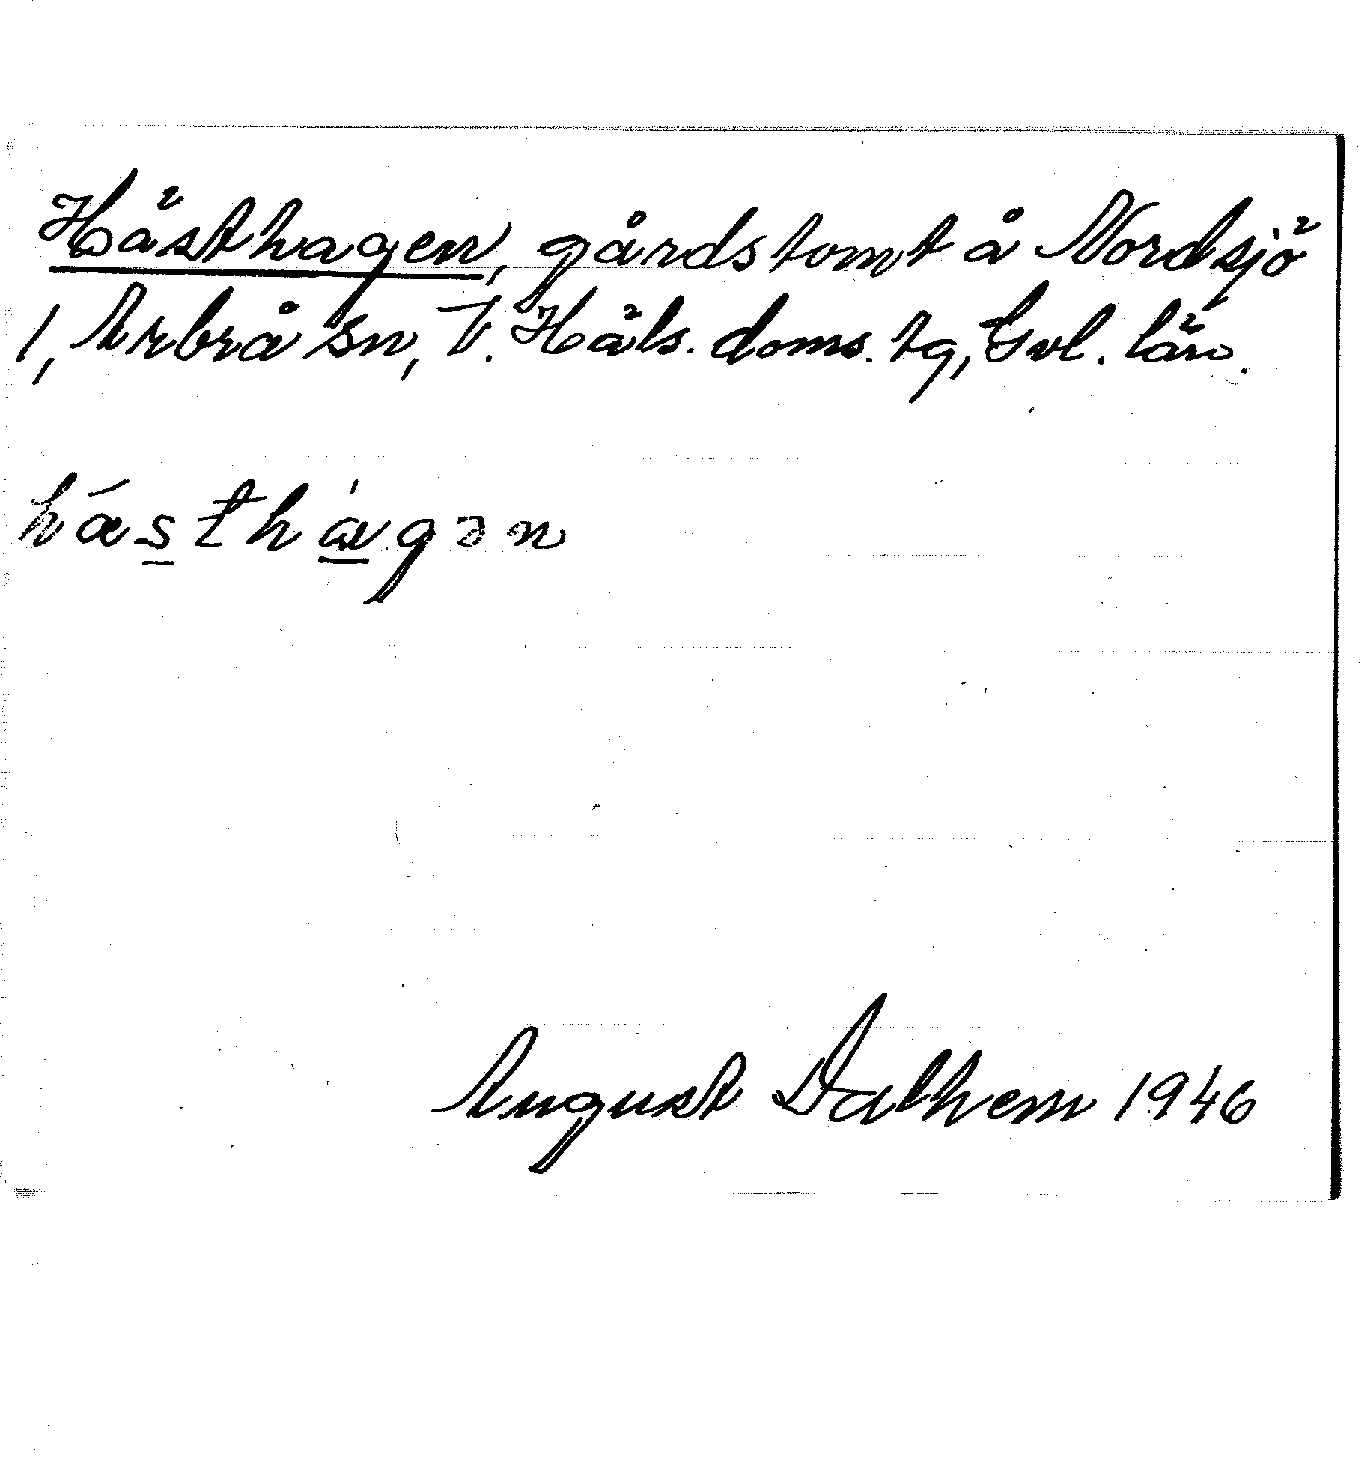 Hästhagen, gårdstomt å Nordsjö
1, Arbrå sn, V. Häls. doms. tg, Gvl. län.
hǽsthàgən
August Dalhem 1946